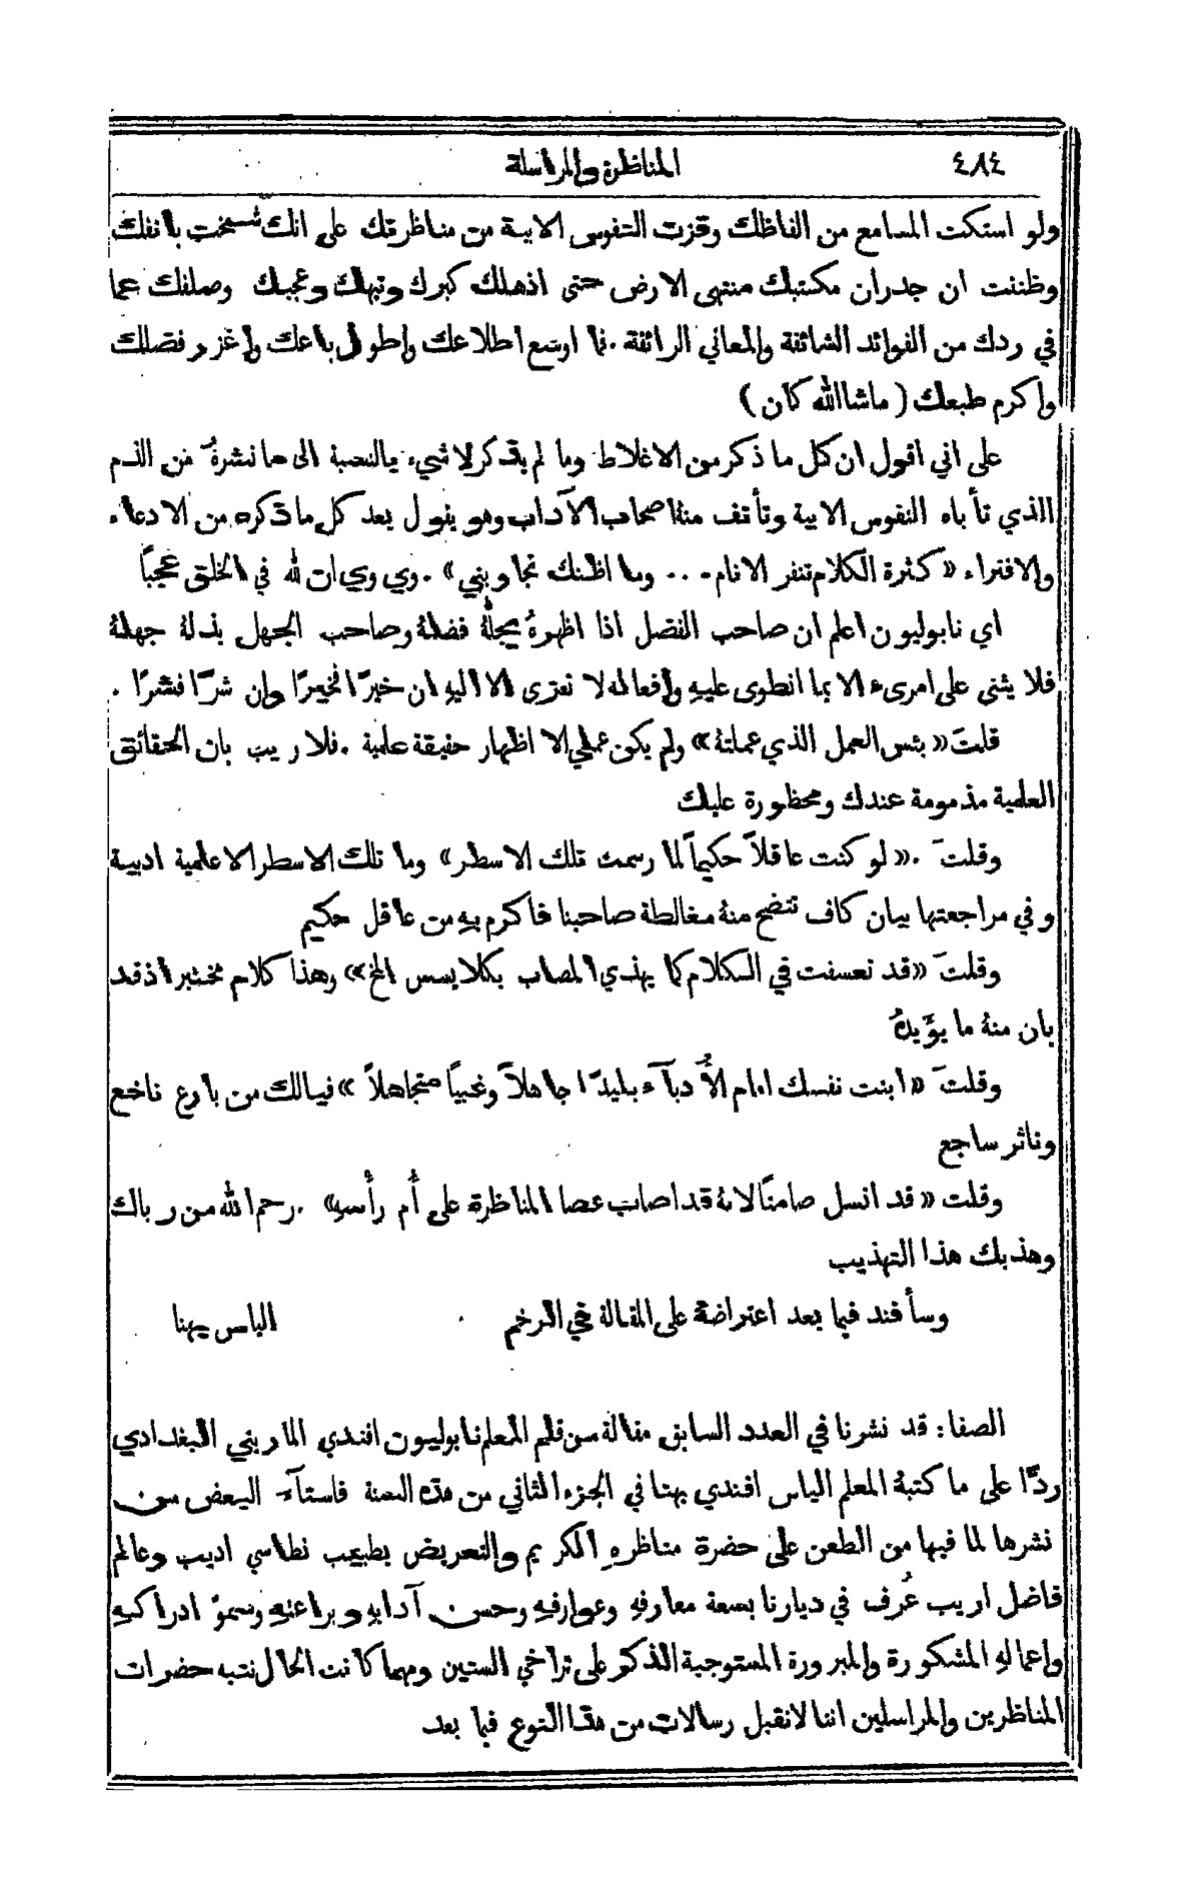 ٤٨٤
المناظرة والمراسلة
ولو استكت المسامع من الفاظك وقزت النفوس الابية من مناظرتك على انك شمخت بانفك
وظننت ان جدران مكتبك منتهى الارض حتى اذهلك كبرك وتيهك وعجبك وصلفك عما
في ردك من الفوائد الشائقة والمعاني الرائقة . فما اوسع اطلاعك واطول باعك واغزر فضلك
واكرم طبعك ( ماشاالله كان )
على اني اقول ان كل ما ذكر من الاغلاط وما لم يذكر لا شيء بالنسبة الى ما نشرهُ من الذم
الذي تأباه النفوس الابية وتأنف منهُ اصحاب الآداب وهو يقول بعد كل ما ذكره من الادعاء
والافتراء « كثرة الكلام تنفر الانام . . . وما اظنك تجاوبني » . وي وي ان لله في الخلق عجبًا
اي نابوليون اعلم ان صاحب الفضل اذا اظهرهُ يجلّهُ فضلهُ وصاحب الجهل يذلهُ جهلهُ
فلا يثنى على امرىء الا بما انطوى عليهِ وافعاله لا تعزى الا اليهِ ان خيرًا فخيرًا وان شرًّا فشرًا .
قلتَ « بئس العمل الذي عملتهُ » ولم يكن عملي الا اظهار حقيقة علمية . فلا ريب بان الحقائق
العلمية مذمومة عندك ومحظورة عليك
وقلتَ . « لو كنت عاقلاً حكيماً لما رسمت تلك الاسطر » وما تلك الاسطر الا علمية ادبية
وفي مراجعتها بيان كاف تتضح منهُ مغالطة صاحبنا فاكرم بهِ من عاقل حكيم
وقلتَ « قد تعسفت في الكلام كما يهذي المصاب بكلابسس الخ » وهذا كلام مختبر اذ قد
بان منهُ ما يؤَيدهُ
وقلتَ « ابنت نفسك امام الأُدبآء بليدًا جاهلاً وغبيًا متجاهلاً » فيالك من بارع ناخع
وناثر ساجع
وقلت « قد انسل صامتًا لانهُ قد اصاب عصا المناظرة على أُم رأْسهِ » . رحم الله من رباك
وهذبك هذا التهذيب
وسأفند فيما بعد اعتراضهُ على المقالة في الرخم
الياس بهنا
الصفا : قد نشرنا في العدد السابق مقالة من قلم المعلم نابوليون افندي الماريني البغدادي
ردًّا على ما كتبهُ المعلم الياس افندي بهنا في الجزء الثاني من هذه السنة فاستآء البعض من
نشرها لما فيها من الطعن على حضرة مناظرهِ الكريم والتعريض بطبيب نطاسي اديب وعالم
فاضل اريب عُرف في ديارنا بسعة معارفهِ وعوارفهِ وحسن آدابهِ وبراعتهِ وسموّ ادراكهِ
واعمالهِ المشكورة والمبرورة المستوجبة الذكر على تراخي السنين ومهما كانت الحال نتبه حضرات
المناظرين والمراسلين اننا لا نقبل رسالات من هذا النوع فيما بعد